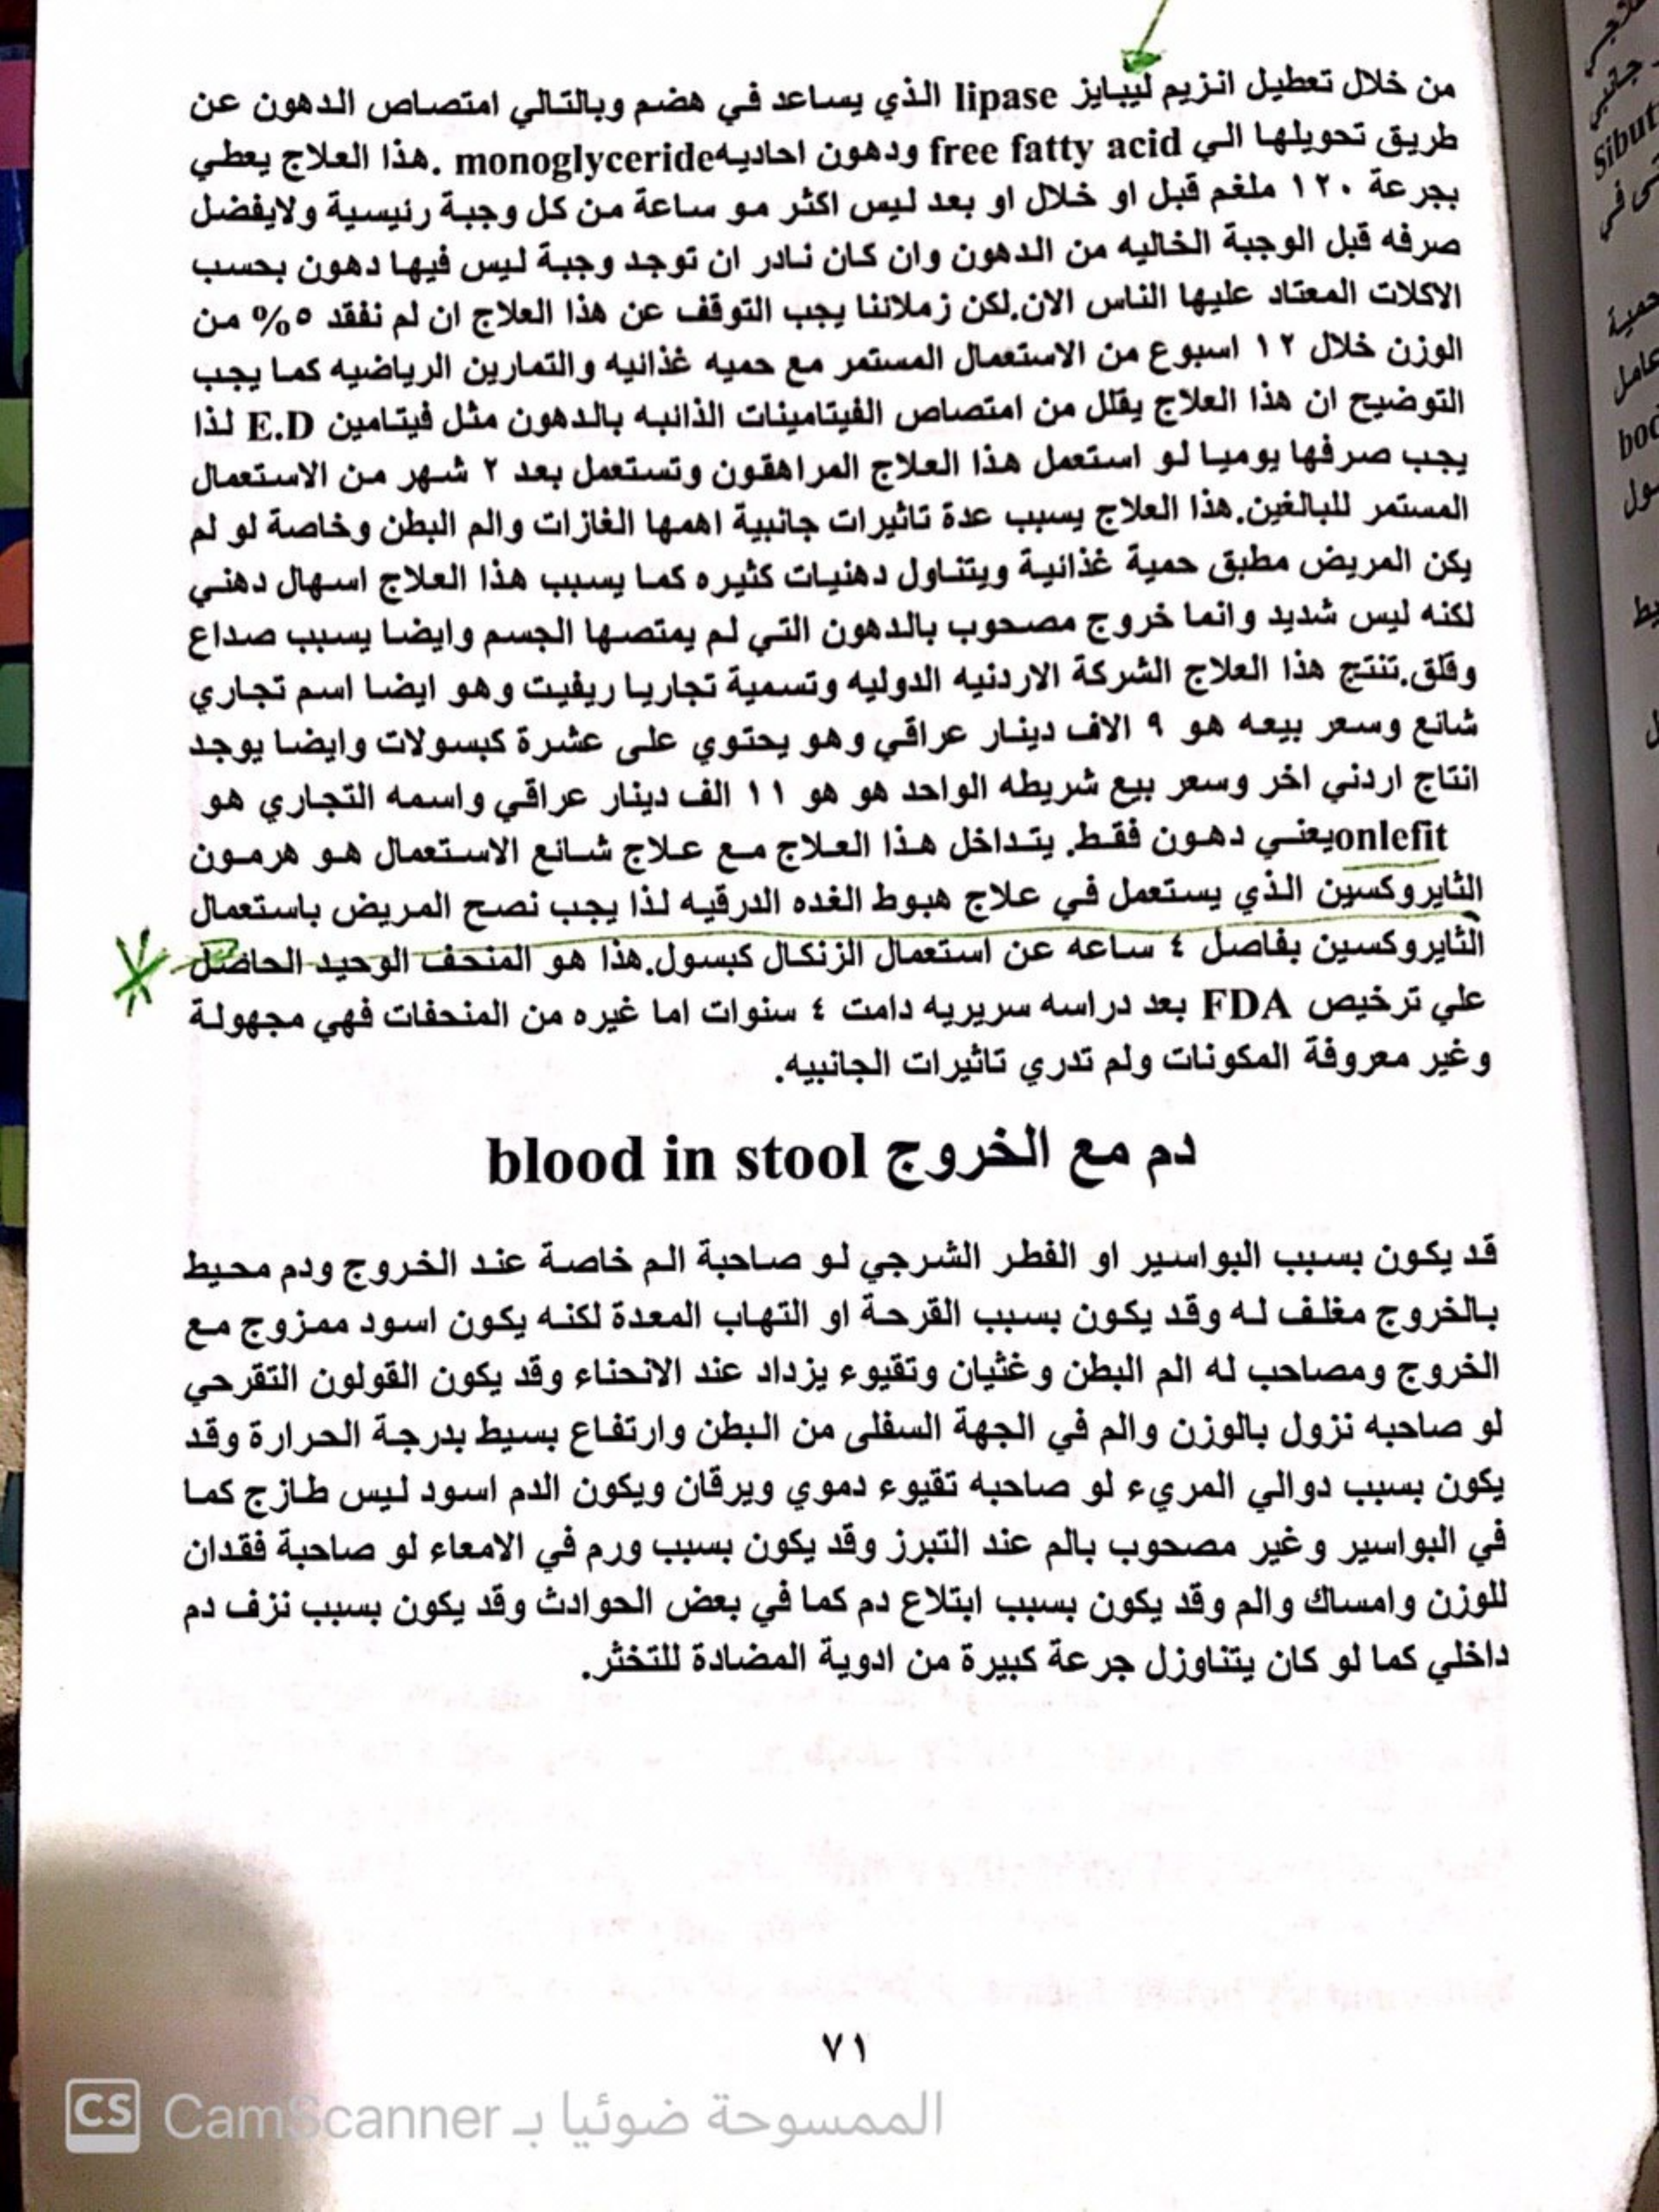 من خلال تعطيل انزيم ليبايز lipase الذي يساعد في هضم وبالتالي امتصاص الدهون عن
طريق تحويلها الي free fatty acid ودهون احاديه monoglyceride. هذا العلاج يعطي
بجرعة ١٢٠ ملغم قبل او خلال او بعد ليس اكثر مو ساعة من كل وجبة رئيسية ولايفضل
صرفه قبل الوجبة الخاليه من الدهون وان كان نادر ان توجد وجبة ليس فيها دهون بحسب
الاكلات المعتاد عليها الناس الان.لكن زملائنا يجب التوقف عن هذا العلاج ان لم نفقد ٥% من
الوزن خلال ١٢ اسبوع من الاستعمال المستمر مع حميه غذائيه والتمارين الرياضيه كما يجب
التوضيح ان هذا العلاج يقلل من امتصاص الفيتامينات الذائبه بالدهون مثل فيتامين E.D لذا
يجب صرفها يوميا لو استعمل هذا العلاج المراهقون وتستعمل بعد ٢ شهر من الاستعمال
المستمر للبالغين.هذا العلاج يسبب عدة تاثيرات جانبية اهمها الغازات والم البطن وخاصة لو لم
يكن المريض مطبق حمية غذائية ويتناول دهنيات كثيره كما يسبب هذا العلاج اسهال دهني
لكنه ليس شديد وانما خروج مصحوب بالدهون التي لم يمتصها الجسم وايضا يسبب صداع
وقلق.تنتج هذا العلاج الشركة الاردنيه الدوليه وتسمية تجاريا ريفيت وهو ايضا اسم تجاري
شائع وسعر بيعه هو ٩ الاف دينار عراقي وهو يحتوي على عشرة كبسولات وايضا يوجد
انتاج اردني اخر وسعر بيع شريطه الواحد هو هو ١١ الف دينار عراقي واسمه التجاري هو
onlefitيعني دهون فقط. يتداخل هذا العلاج مع علاج شائع الاستعمال هو هرمون
الثايروكسين الذي يستعمل في علاج هبوط الغده الدرقيه لذا يجب نصح المريض باستعمال
الثايروكسين بفاصل ٤ ساعه عن استعمال الزنكال كبسول.هذا هو المنحف الوحيد الحاصل
علي ترخيص FDA بعد دراسه سريريه دامت ٤ سنوات اما غيره من المنحفات فهي مجهولة
وغير معروفة المكونات ولم تدري تاثيرات الجانبيه.
دم مع الخروج blood in stool
قد يكون بسبب البواسير او الفطر الشرجي لو صاحبة الم خاصة عند الخروج ودم محيط
بالخروج مغلف له وقد يكون بسبب القرحة او التهاب المعدة لكنه يكون اسود ممزوج مع
الخروج ومصاحب له الم البطن وغثيان وتقيوء يزداد عند الانحناء وقد يكون القولون التقرحي
لو صاحبه نزول بالوزن والم في الجهة السفلى من البطن وارتفاع بسيط بدرجة الحرارة وقد
يكون بسبب دوالي المريء لو صاحبه تقيوء دموي ويرقان ويكون الدم اسود ليس طازج كما
في البواسير وغير مصحوب بالم عند التبرز وقد يكون بسبب ورم في الامعاء لو صاحبة فقدان
للوزن وامساك والم وقد يكون بسبب ابتلاع دم كما في بعض الحوادث وقد يكون بسبب نزف دم
داخلي كما لو كان يتناوزل جرعة كبيرة من ادوية المضادة للتخثر.
٧١
CS الممسوحة ضوئيا بـ CamScanner